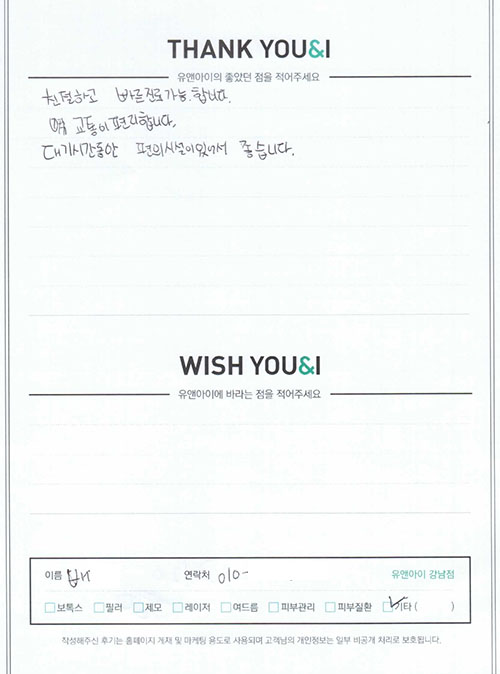 THANK YOU&I
유앤아이의 좋았던 점을 적어주세요
친절하고 빠른진료가능.합니다.
교통이 편리합니다.
대기시간동안 편의시설이있어서 좋습니다.
WISH YOU&I
유앤아이에 바라는 점을 적어주세요
이름 연락처 010- 유앤아이 강남점
보톡스 필러 제모 레이저 여드름 피부관리 피부질환 기타 ( )
작성해주신 후기는 홈페이지 게재 및 마케팅 용도로 사용되며 고객님의 개인정보는 일부 비공개 처리로 보호됩니다.